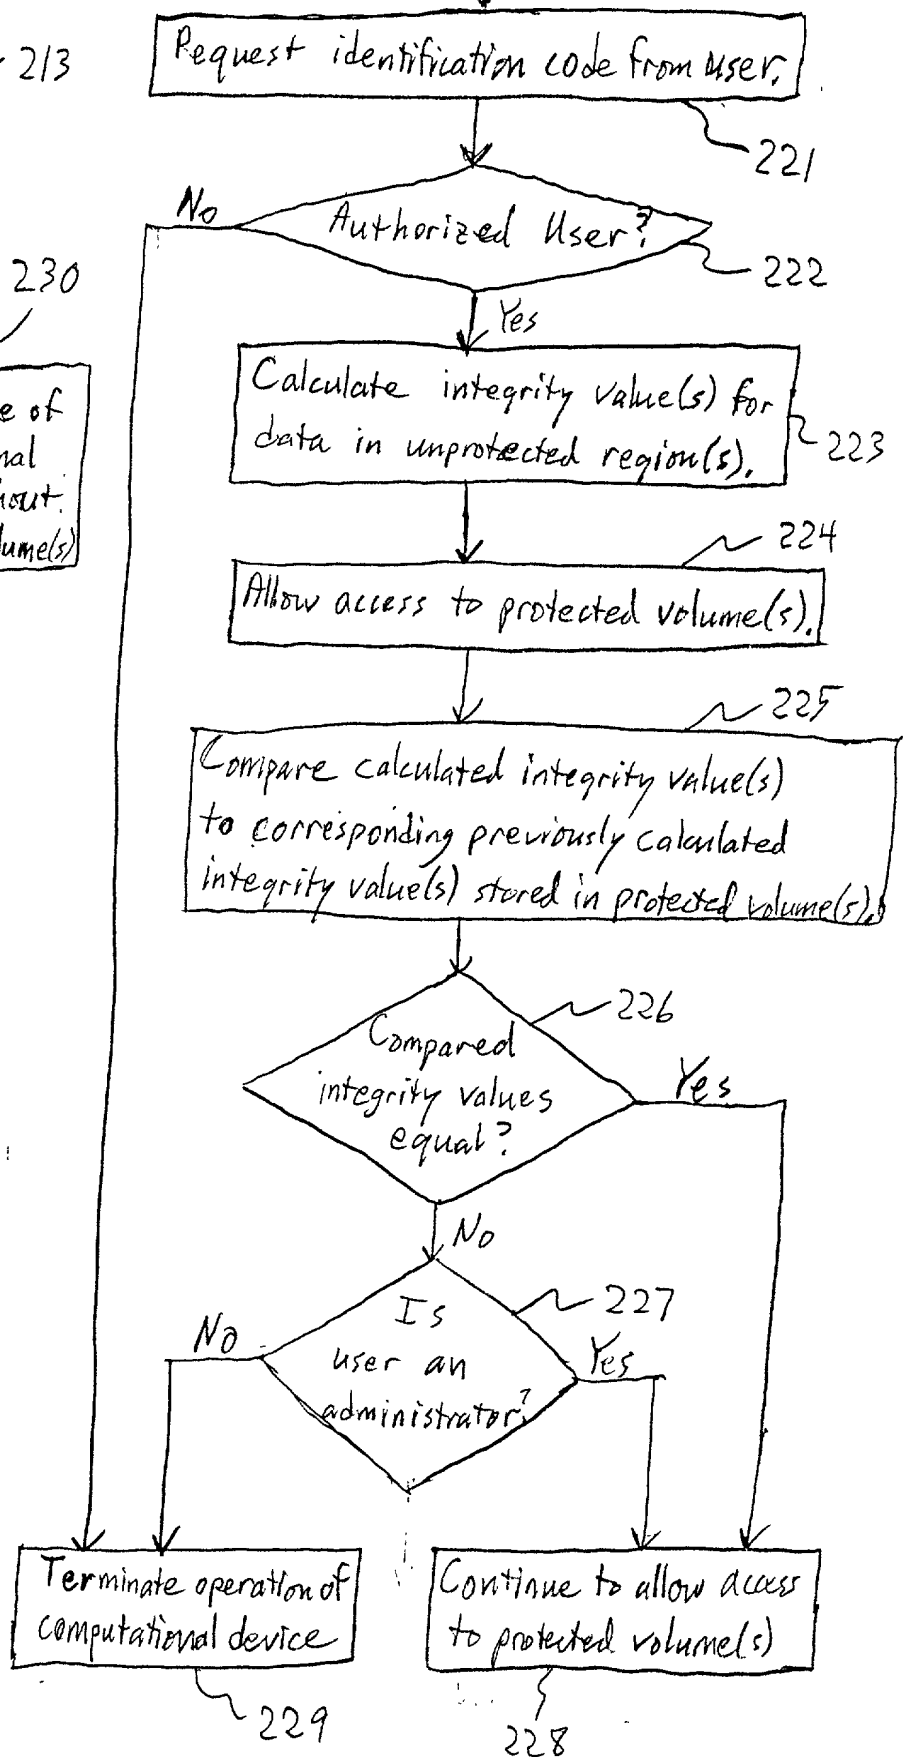 213
Request identification code from user.
221
No
Authorized User?
222
230
Yes
Calculate integrity value(s) for
data in unprotected region(s).
223
e of
nal
hout
lume(s)
224
Allow access to protected volume(s).
225
Compare calculated integrity value(s)
to corresponding previously calculated
integrity value(s) stored in protected volume(s).
226
Compared
integrity values
equal?
Yes
No
227
Is
user an
administrator?
No
Yes
Terminate operation of
computational device
229
Continue to allow access
to protected volume(s)
228